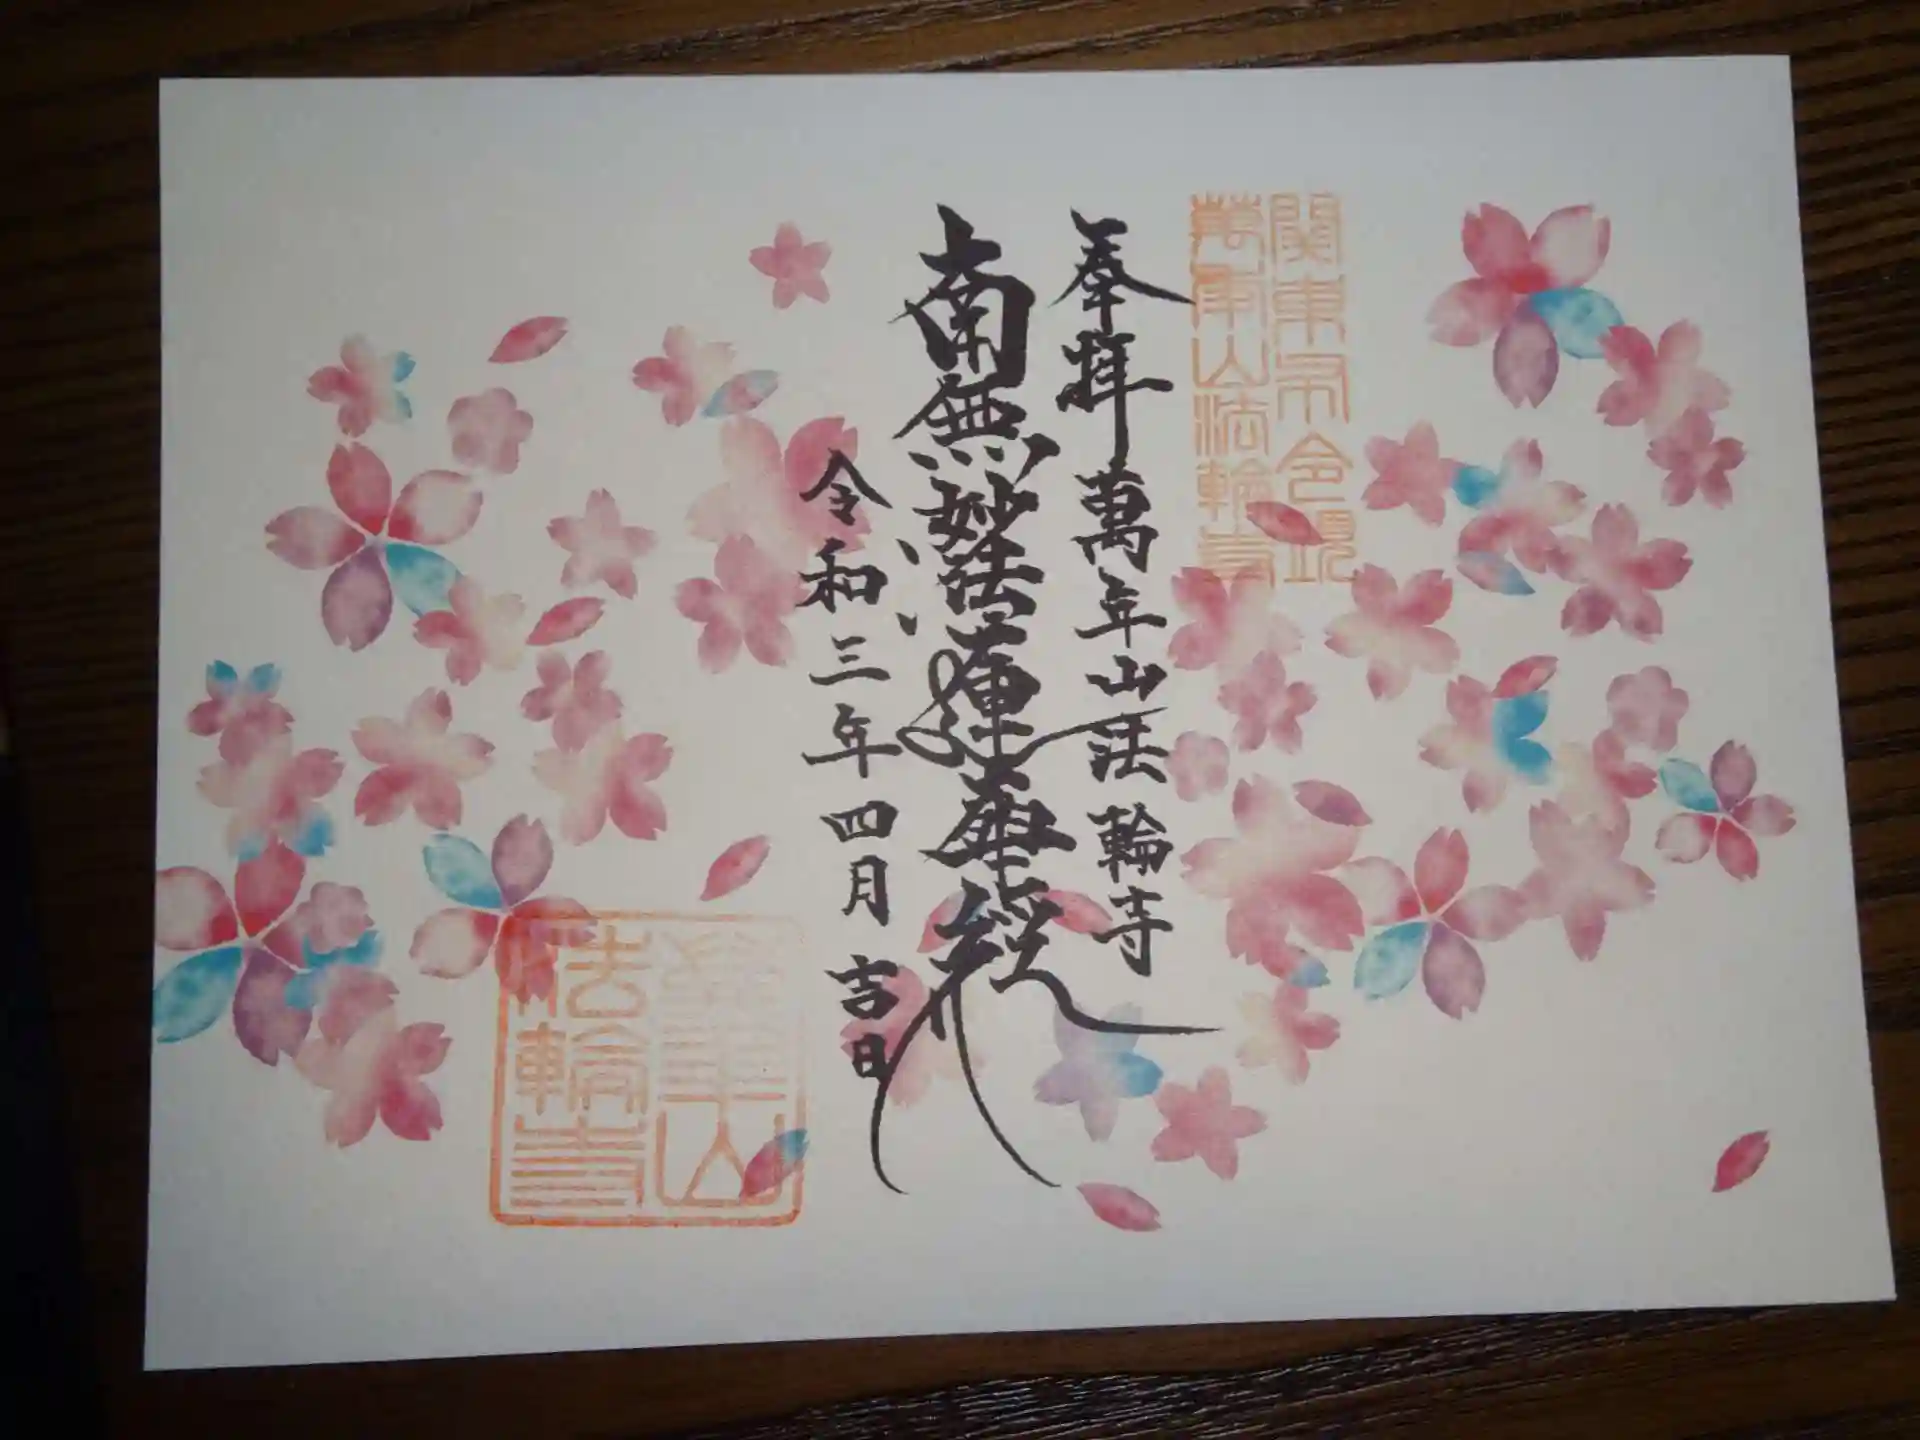 萬年山法輪寺
奉拝 萬年山法輪寺
南無妙法蓮華経
令和三年四月吉日
萬年山
法輪寺